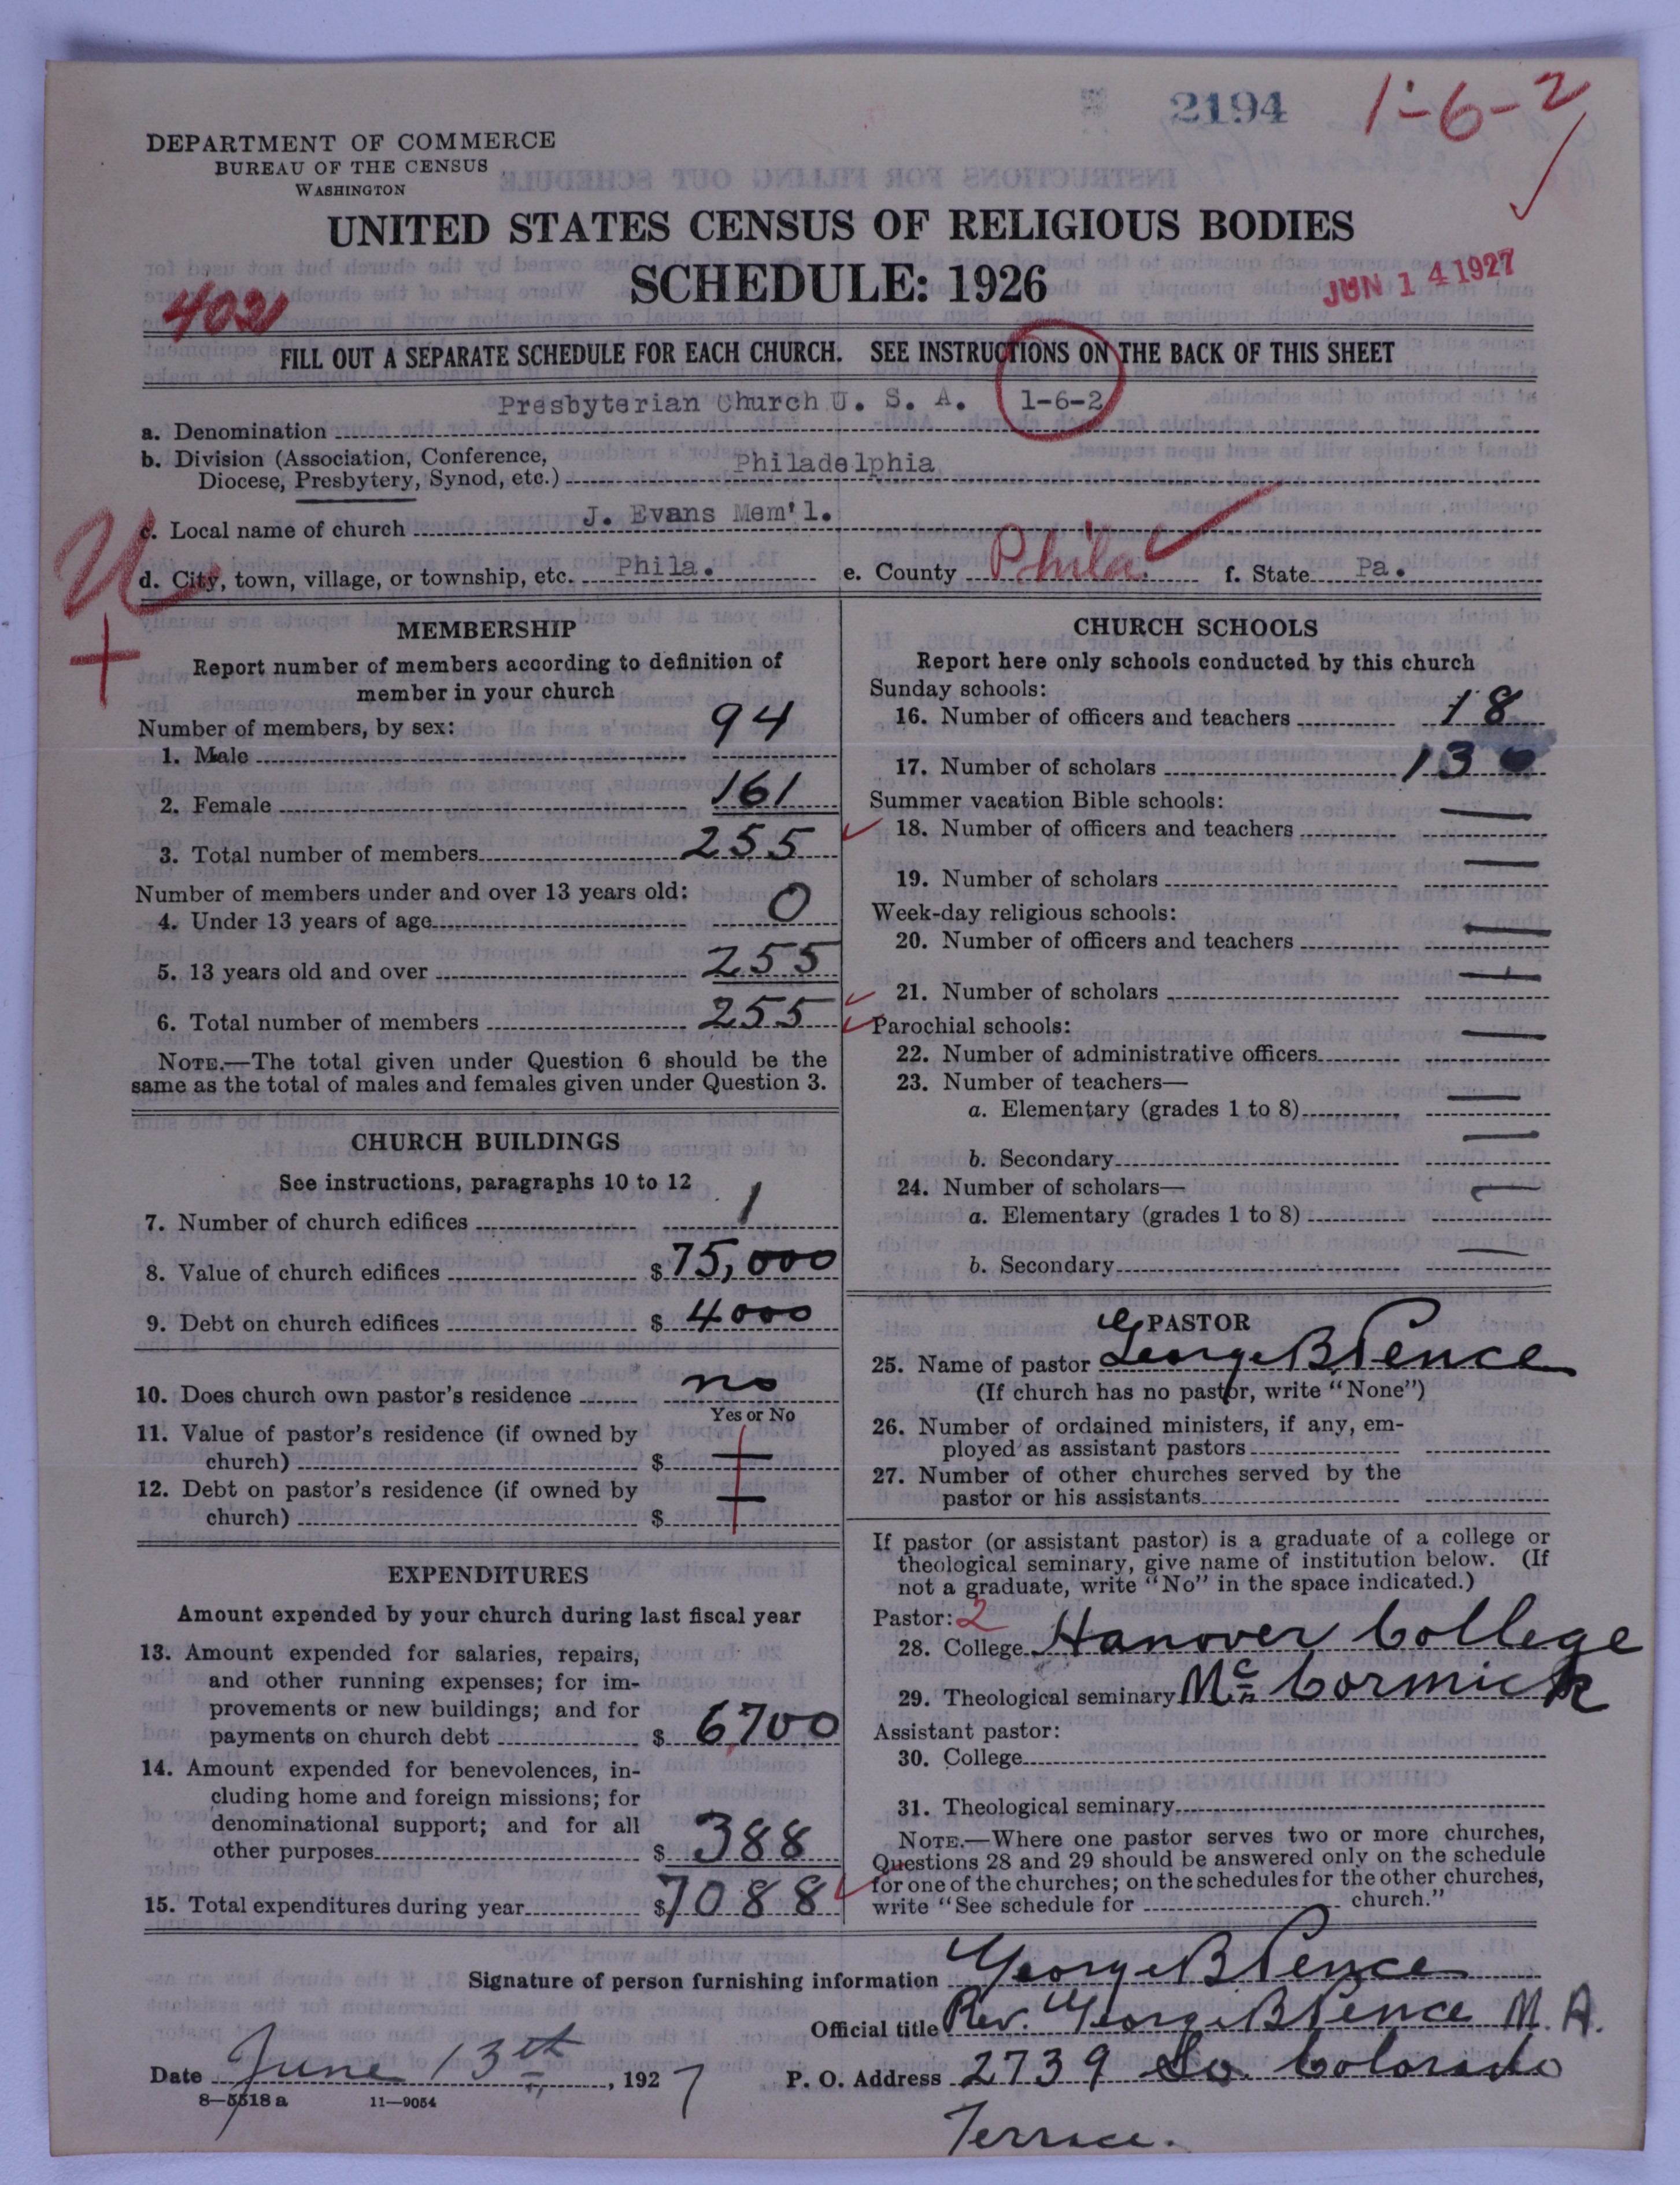 2194
1-6-2
DEPARTMENT OF COMMERCE
BUREAU OF THE CENSUS
WASHINGTON
UNITED STATES CENSUS OF RELIGIOUS BODIES
SCHEDULE: 1926
JUN 14 1927
402
FILL OUT A SEPARATE SCHEDULE FOR EACH CHURCH. SEE INSTRUCTIONS ON THE BACK OF THIS SHEET
a. Denomination Presbyterian Church U. S. A. 1-6-2
b. Division (Association, Conference,
Diocese, Presbytery, Synod, etc.) Philadelphia
c. Local name of church J. Evans Mem'l.
d. City, town, village, or township, etc. Phila. e. County Phila. f. State Pa.
MEMBERSHIP
Report number of members according to definition of
member in your church
Number of members, by sex:
1. Male 94
2. Female 161
3. Total number of members 255
Number of members under and over 13 years old:
4. Under 13 years of age 0
5. 13 years old and over 255
6. Total number of members 255
NOTE.—The total given under Question 6 should be the
same as the total of males and females given under Question 3.
CHURCH BUILDINGS
See instructions, paragraphs 10 to 12
7. Number of church edifices 1
8. Value of church edifices $75,000
9. Debt on church edifices $4000
10. Does church own pastor's residence no
Yes or No
11. Value of pastor's residence (if owned by
church) $ —
12. Debt on pastor's residence (if owned by
church) $ —
EXPENDITURES
Amount expended by your church during last fiscal year
13. Amount expended for salaries, repairs,
and other running expenses; for im-
provements or new buildings; and for
payments on church debt $ 6700
14. Amount expended for benevolences, in-
cluding home and foreign missions; for
denominational support; and for all
other purposes $ 388
15. Total expenditures during year $7088
CHURCH SCHOOLS
Report here only schools conducted by this church
Sunday schools:
16. Number of officers and teachers 18
17. Number of scholars 130
Summer vacation Bible schools:
18. Number of officers and teachers —
19. Number of scholars —
Week-day religious schools:
20. Number of officers and teachers —
21. Number of scholars —
Parochial schools:
22. Number of administrative officers —
23. Number of teachers—
a. Elementary (grades 1 to 8) —
b. Secondary —
24. Number of scholars—
a. Elementary (grades 1 to 8) —
b. Secondary —
PASTOR
25. Name of pastor George B Pence
(If church has no pastor, write "None")
26. Number of ordained ministers, if any, em-
ployed as assistant pastors
27. Number of other churches served by the
pastor or his assistants
If pastor (or assistant pastor) is a graduate of a college or
theological seminary, give name of institution below. (If
not a graduate, write "No" in the space indicated.)
Pastor: 2
28. College Hanover College
29. Theological seminary Mc Cormick
Assistant pastor:
30. College
31. Theological seminary
NOTE.—Where one pastor serves two or more churches,
Questions 28 and 29 should be answered only on the schedule
for one of the churches; on the schedules for the other churches,
write "See schedule for church."
Signature of person furnishing information George B Pence
Official title Rev. George B Pence M. A.
Date June 13th, 1927 P. O. Address 2739 So. Colorado
Terrace.
8—5518 a 11—9054